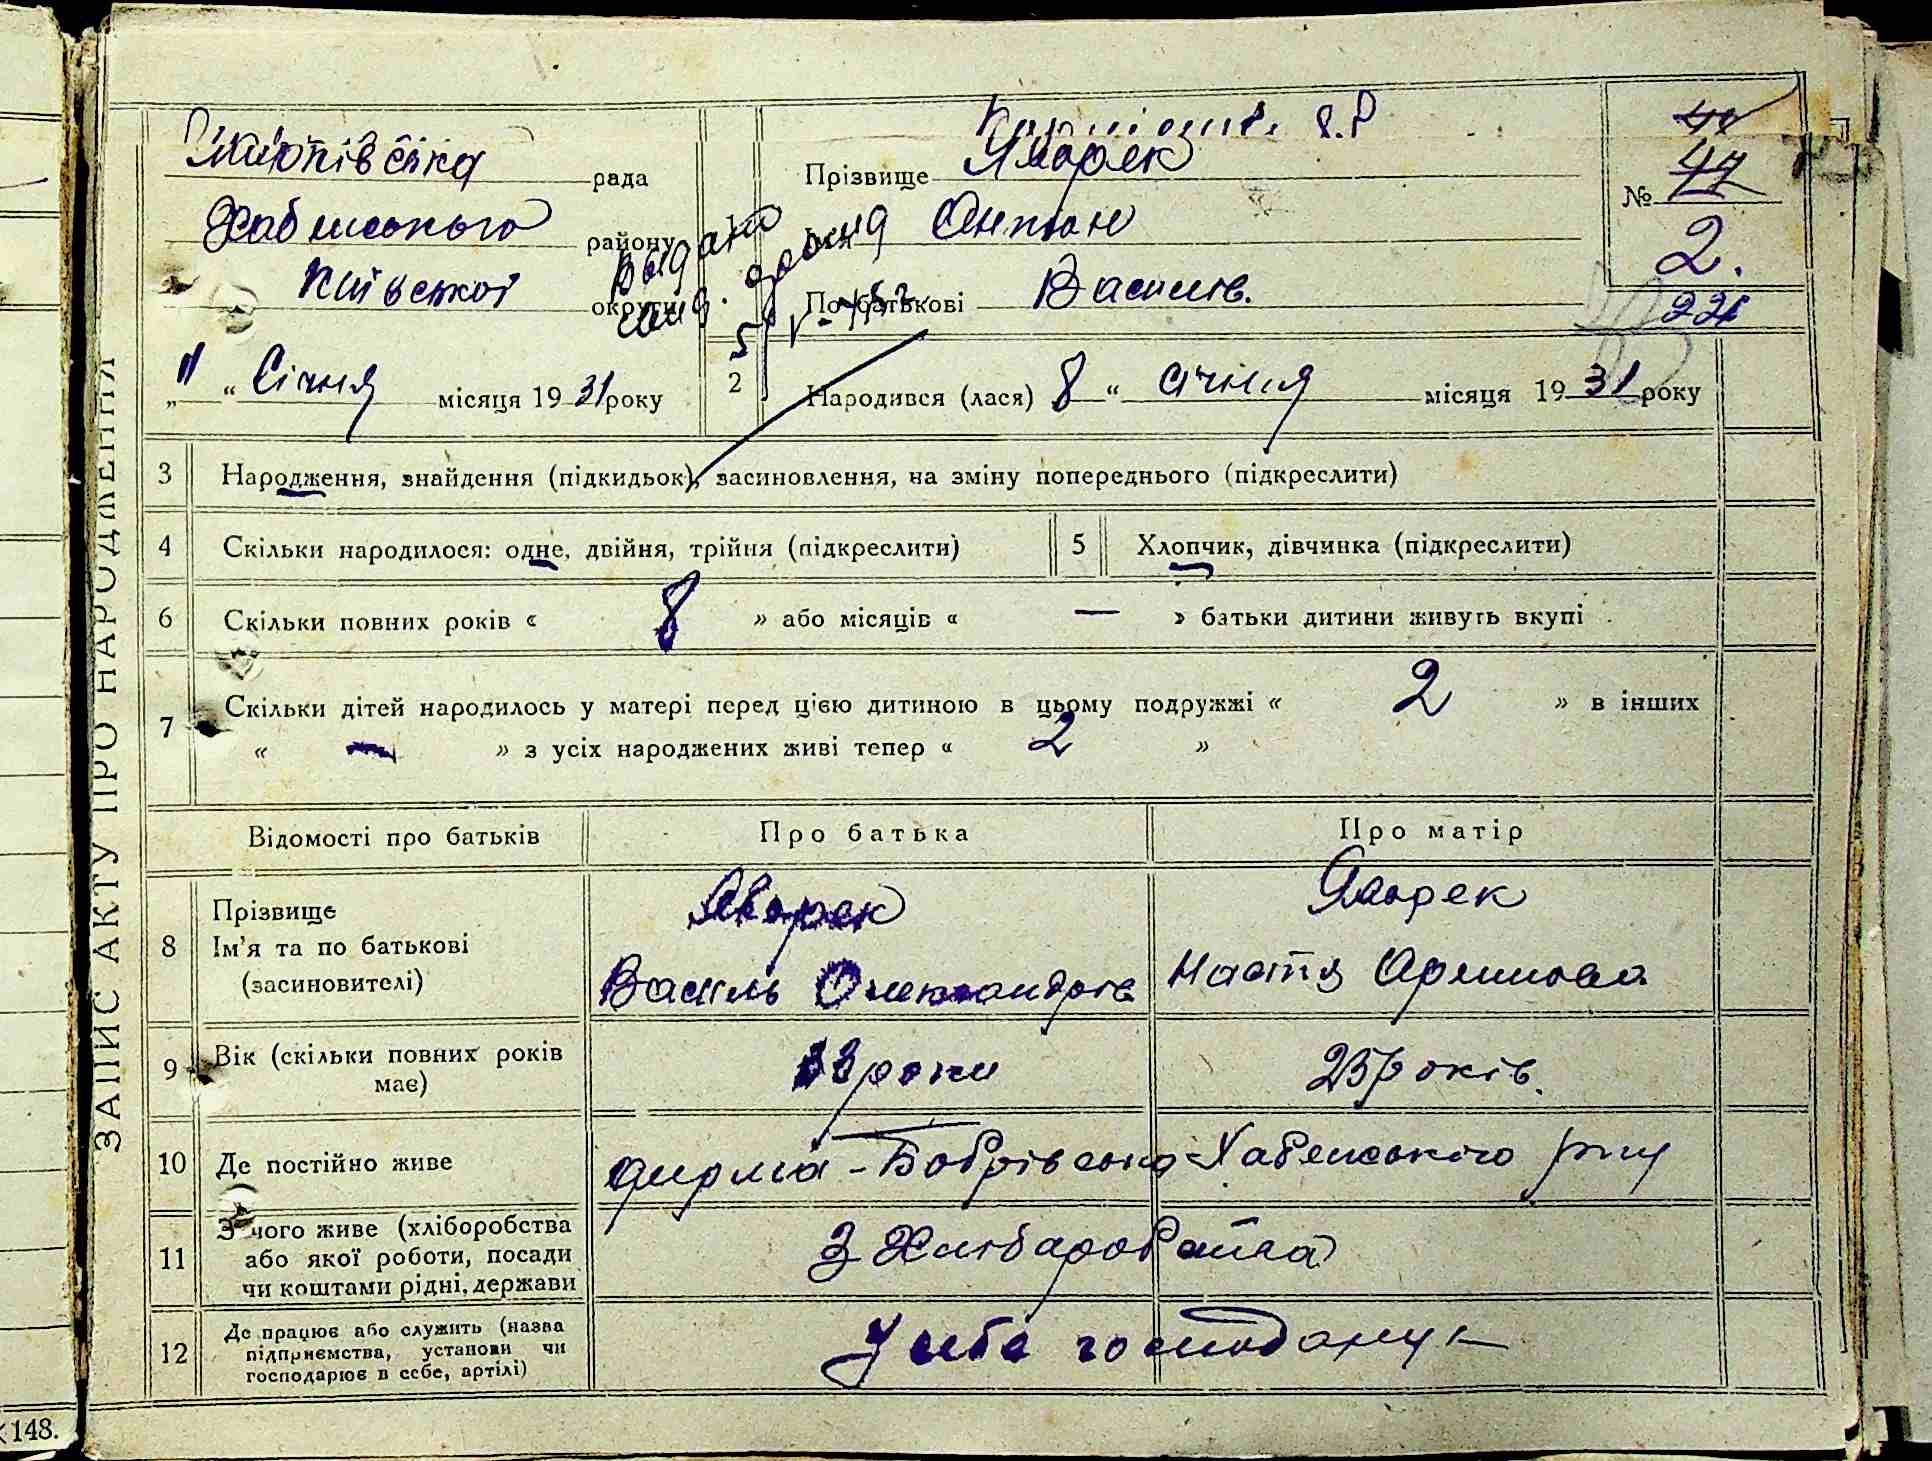 ЗАПИС АКТУ ПРО НАРОДЖЕННЯ
рада
Хабенського району
Київської округи
" 11 " Січня місяця 1931 року
Прізвище Яворек
Антон
По батькові Василів.
№ 47
2.
221
видано
5/V-45
2 Народився (лася) 8 " січня місяця 1931 року
3 Народження, знайдення (підкидьок), засиновлення, на зміну попереднього (підкреслити)
4 Скільки народилося: одне, двійня, трійня (підкреслити)
5 Хлопчик, дівчинка (підкреслити)
6 Скільки повних років « 8 » або місяців « — » батьки дитини живуть вкупі
7 Скільки дітей народилось у матері перед цією дитиною в цьому подружжі « 2 » в інших
« — » з усіх народжених живі тепер « 2 »
Відомості про батьків Про батька Про матір
8 Прізвище
Ім'я та по батькові
(засиновителі)
Яворек
Василь Олександрів
Яворек
Настя
9 Вік (скільки повних років
має)
33 роки
25 років.
10 Де постійно живе
Бобрівська Хабенського р-ну
11 З чого живе (хліборобства
або якої роботи, посади
чи коштами рідні, держави
З Хлібаробства
12 Де працює або служить (назва
підприємства, установи чи
господарює в себе, артілі)
У себе
148.